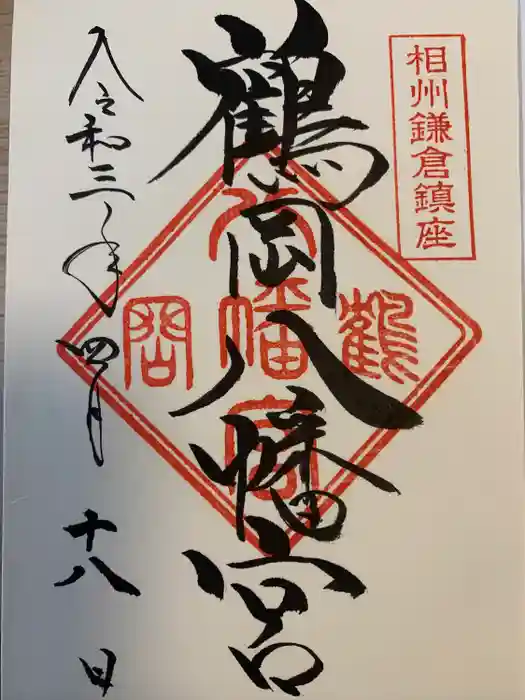 相州鎌倉鎮座
鶴岡八幡宮
鶴
八幡宮
岡
令和三年四月十八日